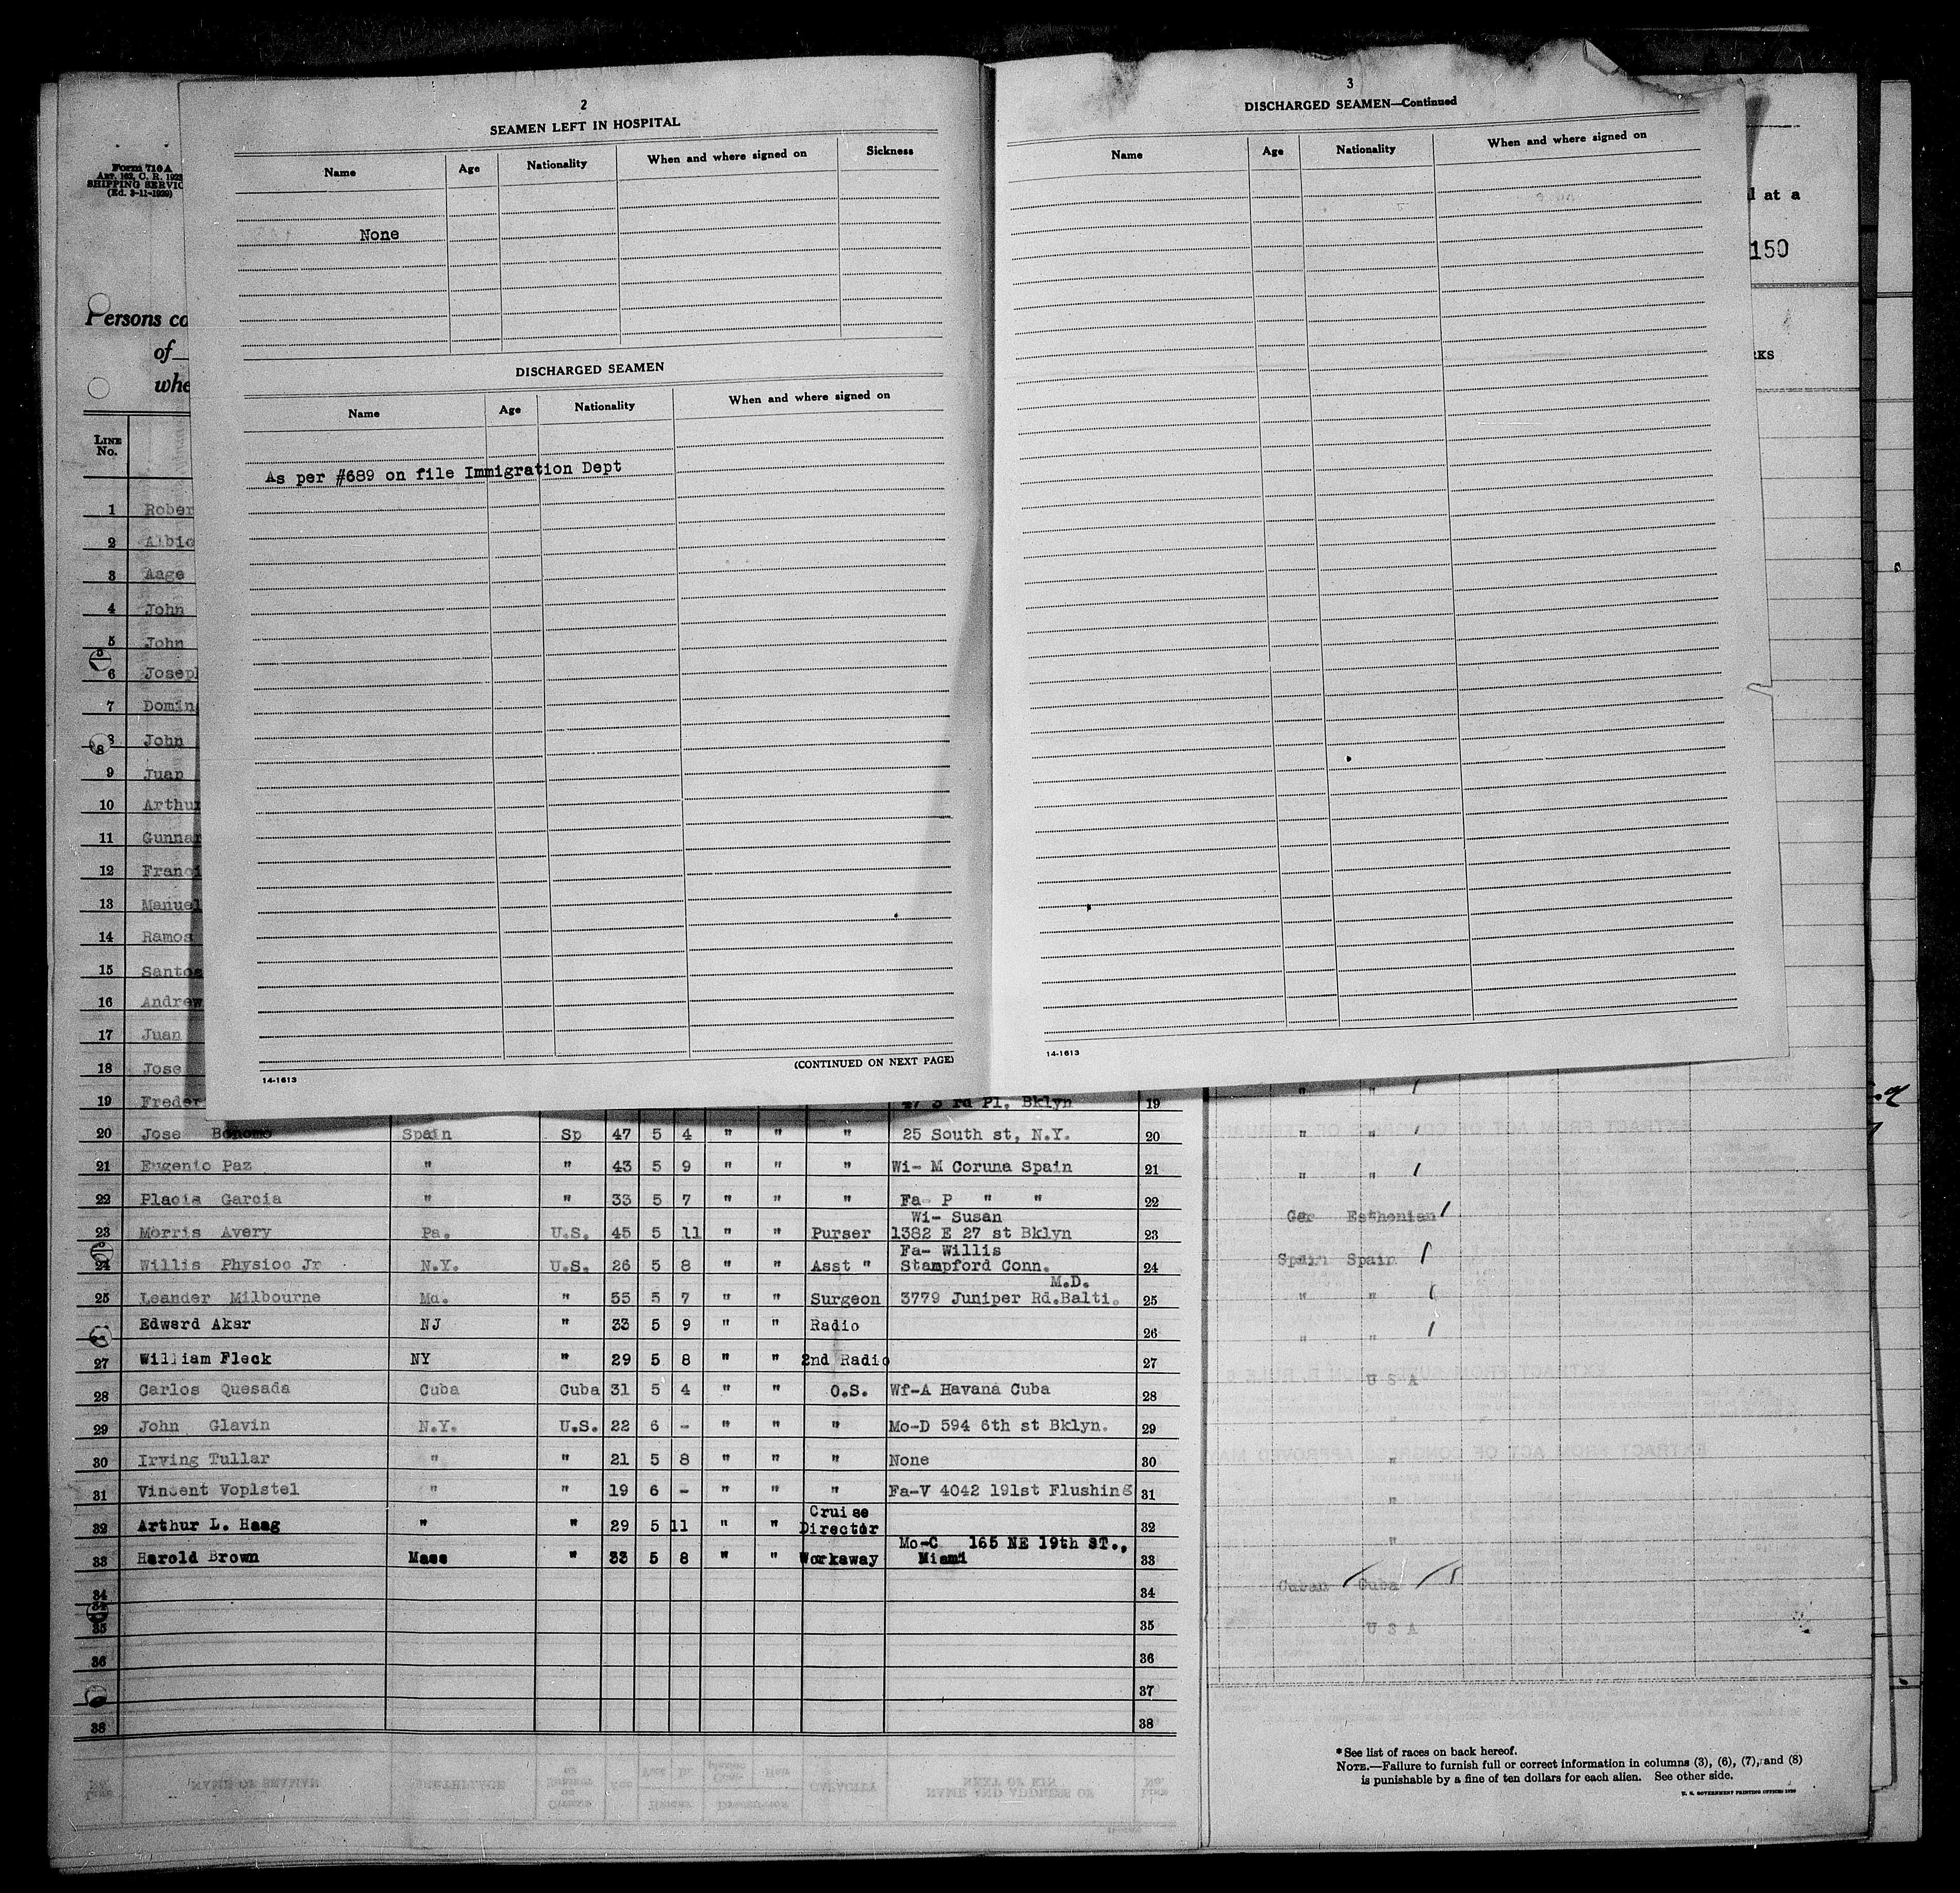 2
SEAMEN LEFT IN HOSPITAL
Name Age Nationality When and where signed on Sickness
None
DISCHARGED SEAMEN
Name Age Nationality When and where signed on
As per #689 on file Immigration Dept
(CONTINUED ON NEXT PAGE)
14-1613
3
DISCHARGED SEAMEN—Continued
Name Age Nationality When and where signed on
14-1613
Form 710 A
Art. 162, C. R. 1923
SHIPPING SERVIC
(Ed. 3-11-1929)
l at a
150
Persons co
of
whe
RKS
LINE No.
1 Rober
2 Albio
3 Aage
4 John
5 John
6 Joseph
7 Domin
8 John
9 Juan
10 Arthur
11 Gunnar
12 Franci
13 Manuel
14 Ramos
15 Santos
16 Andrew
17 Juan
18 Jose
19 Freder 47 3 rd Pl. Bklyn 19
20 Jose Bonomo Spain Sp 47 5 4 " " " 25 South st, N.Y. 20
21 Eugenio Paz " " 43 5 9 " " " Wi- M Coruna Spain 21
22 Placis Garcia " " 33 5 7 " " " Fa- P " " 22
Wi- Susan
23 Morris Avery Pa. U.S. 45 5 11 " " Purser 1382 E 27 st Bklyn 23
Fa- Willis
24 Willis Physioc Jr N.Y. U.S. 26 5 8 " " Asst " Stampford Conn. 24
M.D.
25 Leander Milbourne Md. " 55 5 7 " " Surgeon 3779 Juniper Rd.Balti. 25
Edward Akar NJ " 33 5 9 " " Radio 26
27 William Fleck NY " 29 5 8 " " 2nd Radio 27
28 Carlos Quesada Cuba Cuba 31 5 4 " " O.S. Wf-A Havana Cuba 28
29 John Glavin N.Y. U.S. 22 6 - " " " Mo-D 594 6th st Bklyn. 29
30 Irving Tullar " " 21 5 8 " " " None 30
31 Vincent Voplstel " " 19 6 - " " " Fa-V 4042 191st Flushing 31
Cruise
32 Arthur L. Haag " " 29 5 11 " " Director 32
Mo-C 165 NE 19th ST.,
33 Harold Brown Mass " 33 5 8 " " Workaway Miami 33
34 34
35 35
36 36
37
38 38
" " /
" " /
" " /
Ger Esthonian /
Spain Spain /
" " /
" " /
U S A
"
"
"
"
Cuban Cuba
U S A
* See list of races on back hereof.
NOTE.—Failure to furnish full or correct information in columns (3), (6), (7), and (8)
is punishable by a fine of ten dollars for each alien. See other side.